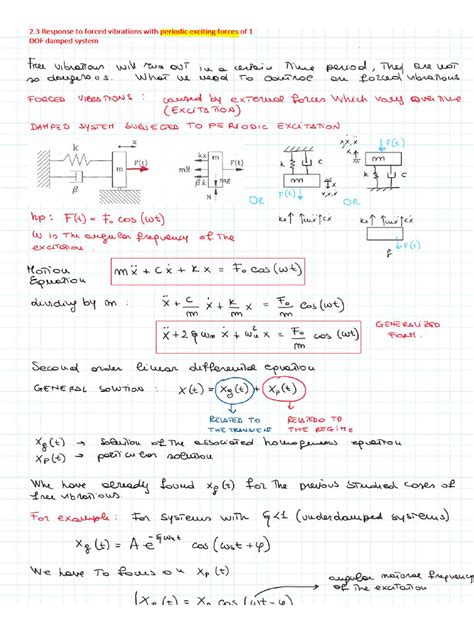 2.3 Response to forced vibrations with periodic exciting forces of 1
DOF damped system
Free vibrations will run out in a certain time period, they are not
so dangerous. What we need to control are forced vibrations
FORCED VIBRATIONS : caused by external forces which vary overtime
(EXCITATION)
DAMPED SYSTEM SUBJECTED TO PERIODIC EXCITATION
k x F(t) m β
kx mẍ βẋ m F(t) mg N
OR
m F(t) k c x,ẋ,ẍ
OR
F(t) m k c
kx mẍ cẋ
F(t)
hp : F(t) = F₀ cos (ωt)
ω is the angular frequency of the
excitation.
Motion
Equation
mẍ + cẋ + kx = F₀ cos(ωt)
dividing by m :
ẍ + c/m ẋ + k/m x = F₀/m cos(ωt)
ẍ + 2ξωₙẋ + ωₙ²x = F₀/m cos(ωt)
GENERALIZED
FORM.
Second order linear differential equation
GENERAL SOLUTION : x(t) = xg(t) + xp(t)
RELATED TO
THE TRANSIENT
RELATED TO
THE REGIME
xg(t) → solution of the associated homogeneous equation
xp(t) → particular solution
We have already found xg(t) for the previous studied cases of
free vibrations.
For example : For systems with ξ<1 (underdamped systems)
xg(t) = A e^-ξωₙt cos(ωst+φ)
We have to focus on xp(t)
angular natural frequency
of the excitation
xp(t) = x₀ cos(ωt-φ)